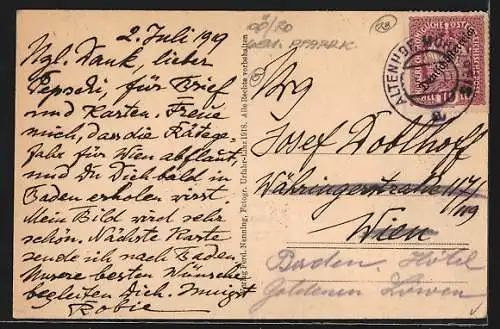 2. Juli 1919
Vgl. Dank lieber
Pepschi, für Brief
und Karten. Freue
mich, dass die Rätege-
fahr für Wien abflaut,
und Du Dich bald in
Baden erholen wirst.
Mein Bild wird sehr
schön. Nächste Karte
sende ich nach Baden.
Unsere besten Wünsche
begleiten Dich. Innigst
Verlag Ferd. Nenning, Fotogr. Urfahr-Linz 1918. Alle Rechte vorbehalten
GEM. PFARRK.
ALTENHOF
Deutschösterreich
Josef
Währingerstraße
Wien
Baden, Hôtel
Goldenen Löwen